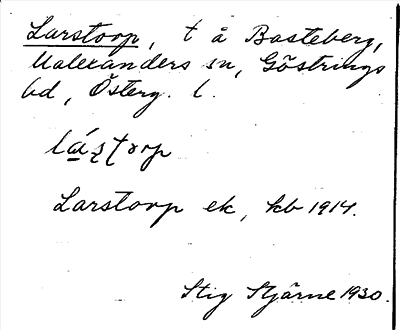 Larstorp, t å Basteberg,
Valexanders sn, Göstrings
hd, Österg. l.
lá̱ʂʈorp
Larstorp ek, kb 1914.
Stig Stjärne 1930.